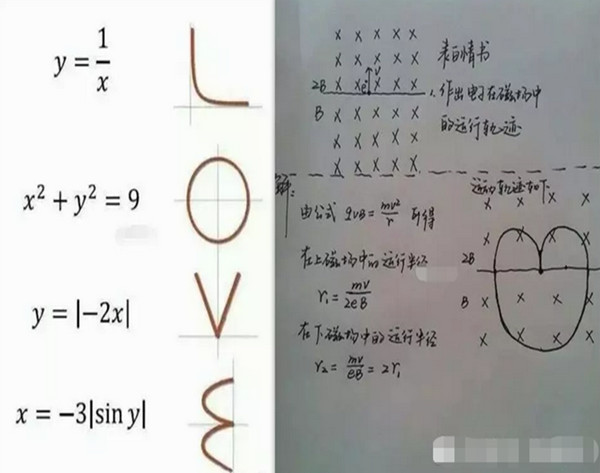 y = 1/x
x² + y² = 9
y = |-2x|
x = -3|sin y|
× × × × ×
× × × × ×
2B × × e v × × ×
B × × × × ×
× × × × ×
× × × × ×
表白情书
1. 作出电子在磁场中
的运行轨迹
解:
由公式 qvB = mv²/r 可得
在上磁场中的运行半径
r₁ = mv/2eB
在下磁场中的运行半径
r₂ = mv/eB = 2r₁
运动轨迹如下
× × × ×
× × × ×
2B
B × × × ×
× × × ×